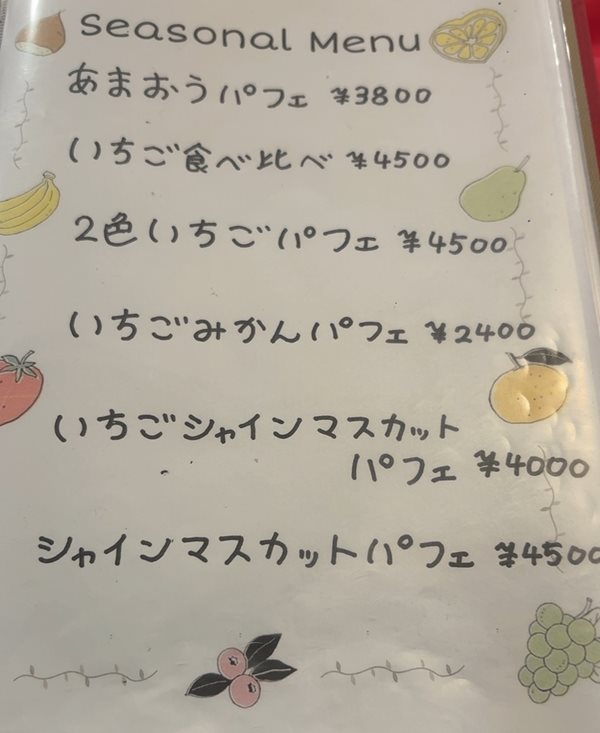 Seasonal Menu
あまおうパフェ ¥3800
いちご食べ比べ ¥4500
2色いちごパフェ ¥4500
いちごみかんパフェ ¥2400
いちごシャインマスカット
パフェ ¥4000
シャインマスカットパフェ ¥4500